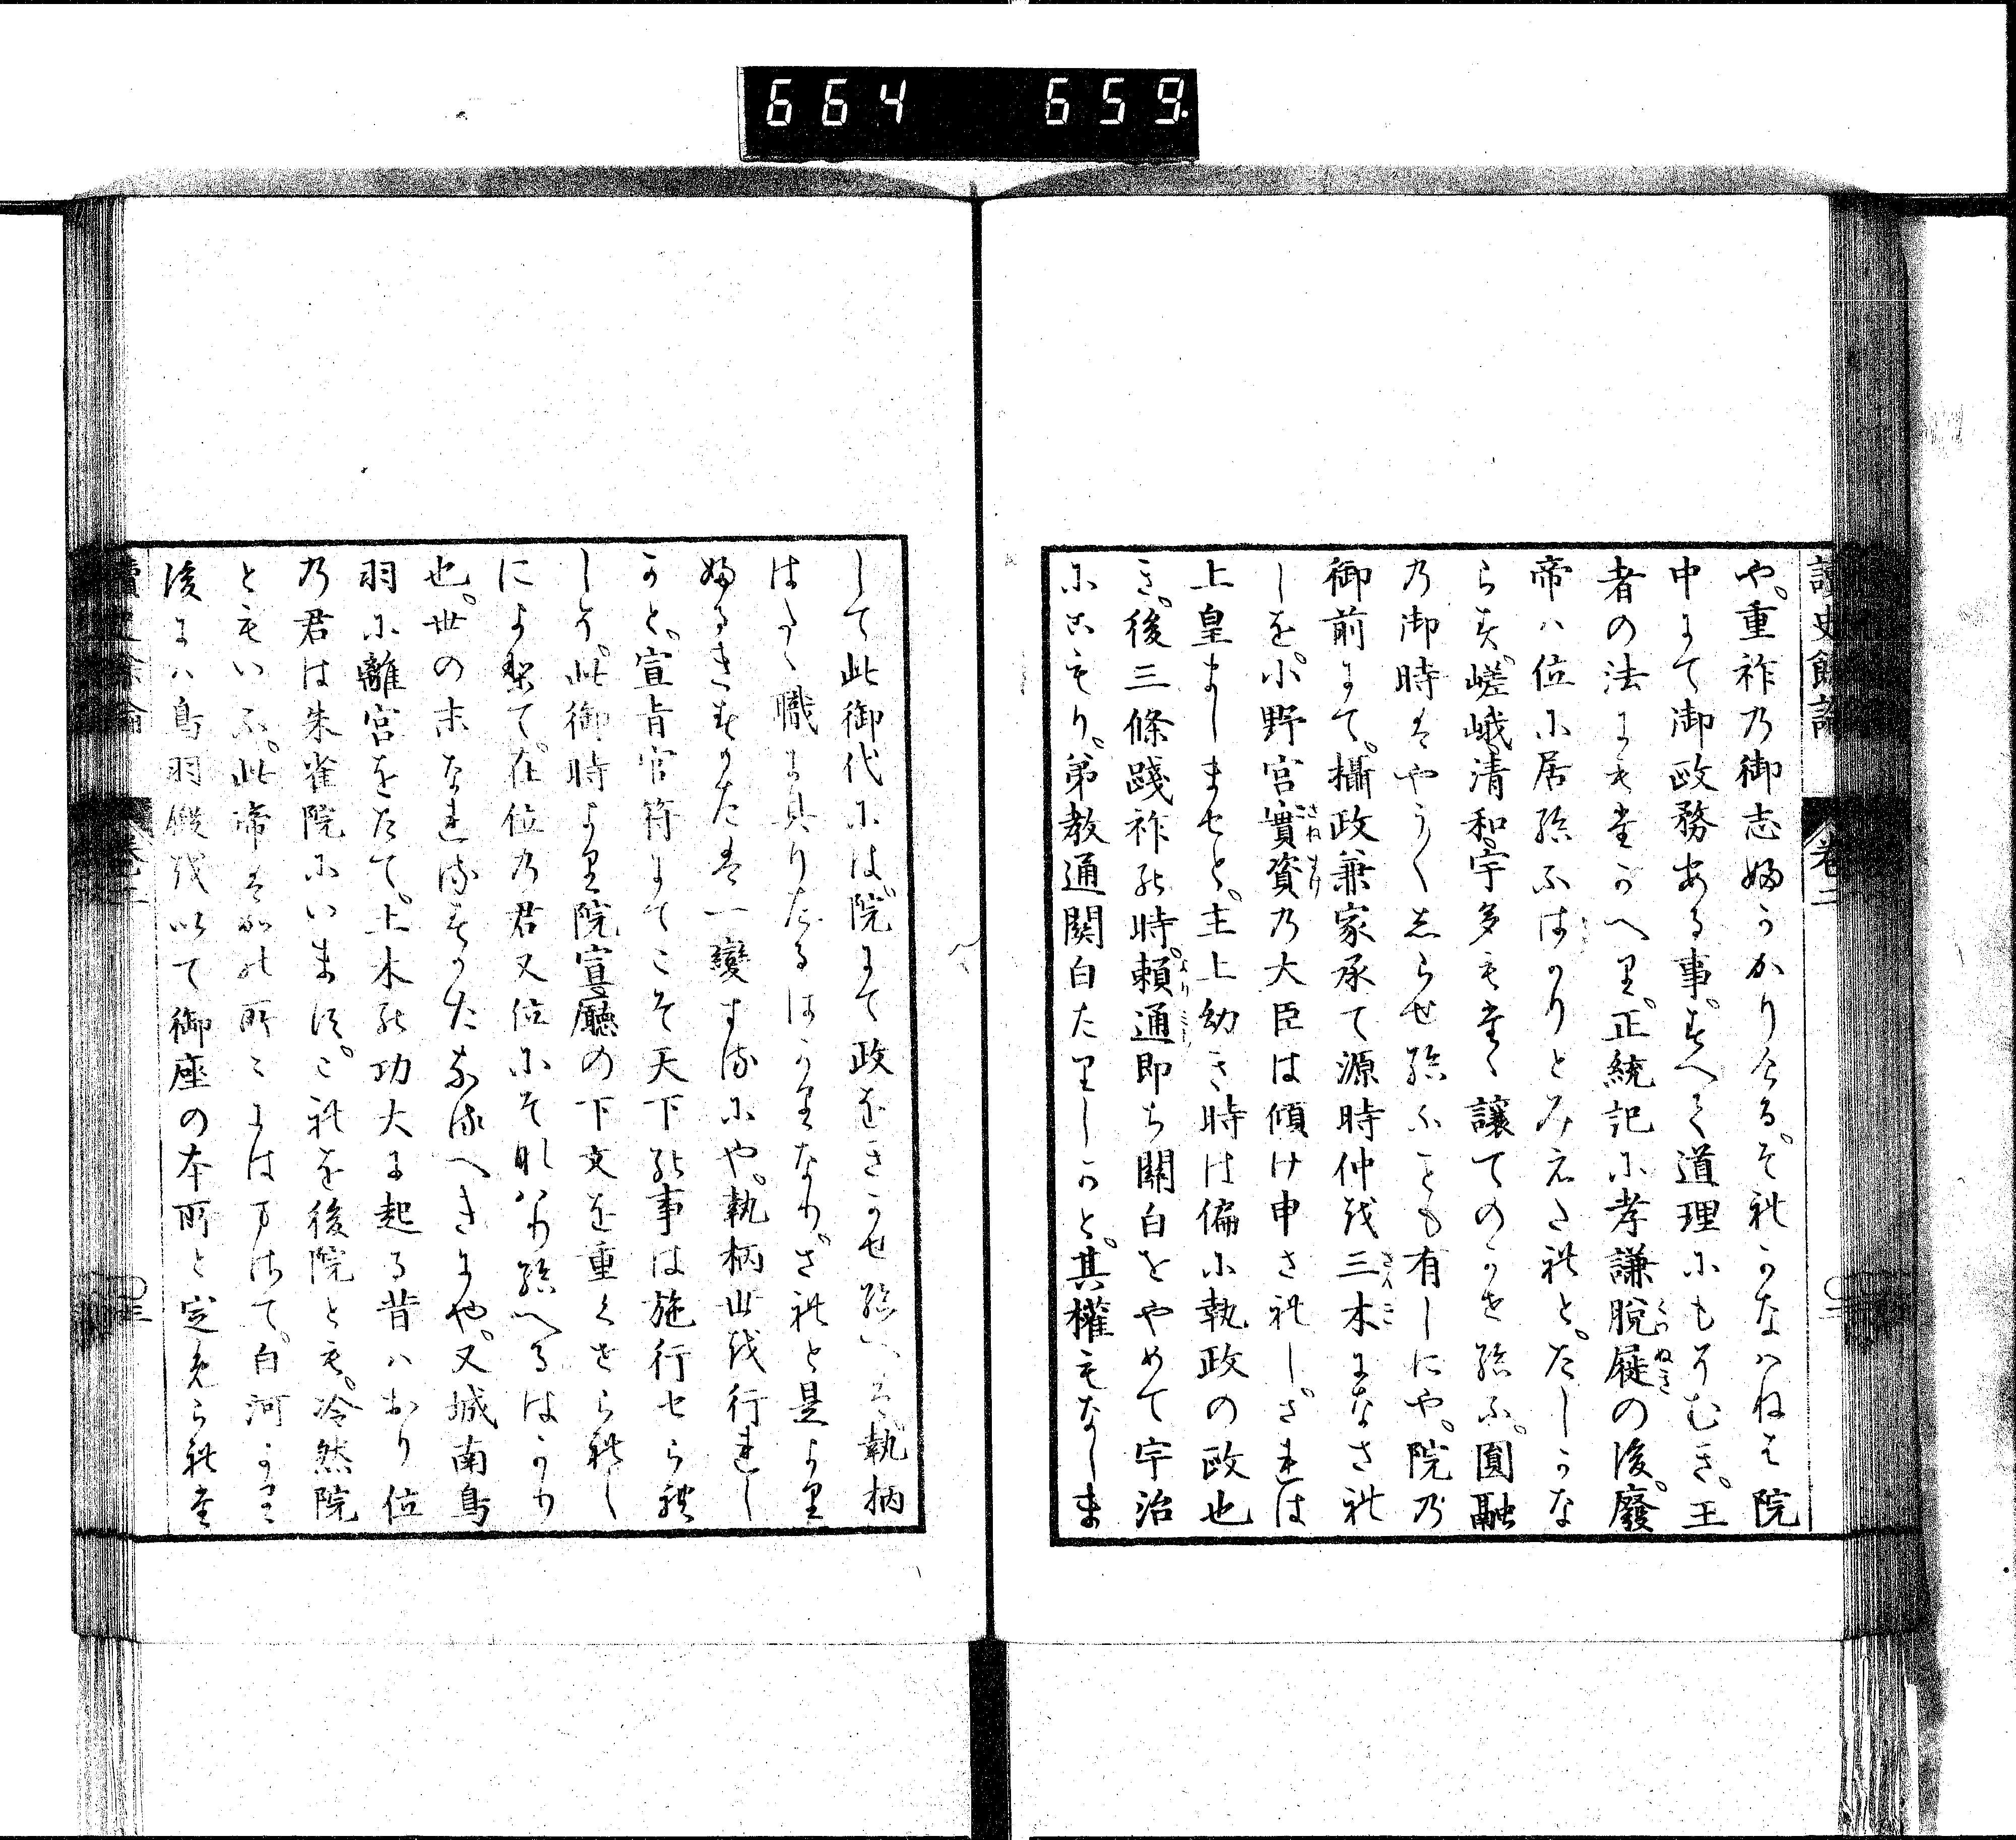 664 659
讀史餘論 卷二
や。重祚乃御志ふかゝりける。それかなハねは院
中にて御政務ある事。すへて道理にもそむき。王
者の法にもたかへり。正統記に孝謙脱屣の後。廢
帝ハ位に居給ふはかりとみえたれと。たしかな
らす。嵯峨清和宇多もたゝ讓てのかせ給ふ。圓融
乃御時はやうくしらせ給ふことも有しにや。院乃
御前にて。攝政兼家承て源時仲を三木になされ
しを。小野宮實資乃大臣は傾け申されし。されは
上皇ましませと。主上幼き時は偏に執政の政也
き。後三條踐祚の時。頼通即ち關白をやめて宇治
にこもり。弟教通関白たりしかと。其權もなしま
して此御代には院にて政をきかせ給へは執柄
はたゝ職に具りたるはかりなり。されと是より
ふるきすかたは一變するにや。執柄世を行れし
かと。宣旨官符にてこそ天下の事は施行せられ
しに。此御時より院宣廳の下文を重くせられし
により。在位乃君又位にそなハり給へるはかり
也。世の末なれるすかたなるへきにや。又城南鳥
羽に離宮をたて。土木の功大に起る昔ハおり位
乃君は朱雀院にいます。これを後院とも。冷然院
ともいふ。此帝はかの所々には すて。白河より
後にハ鳥羽殿を以て御座の本所と定められた
讀史餘論 卷二